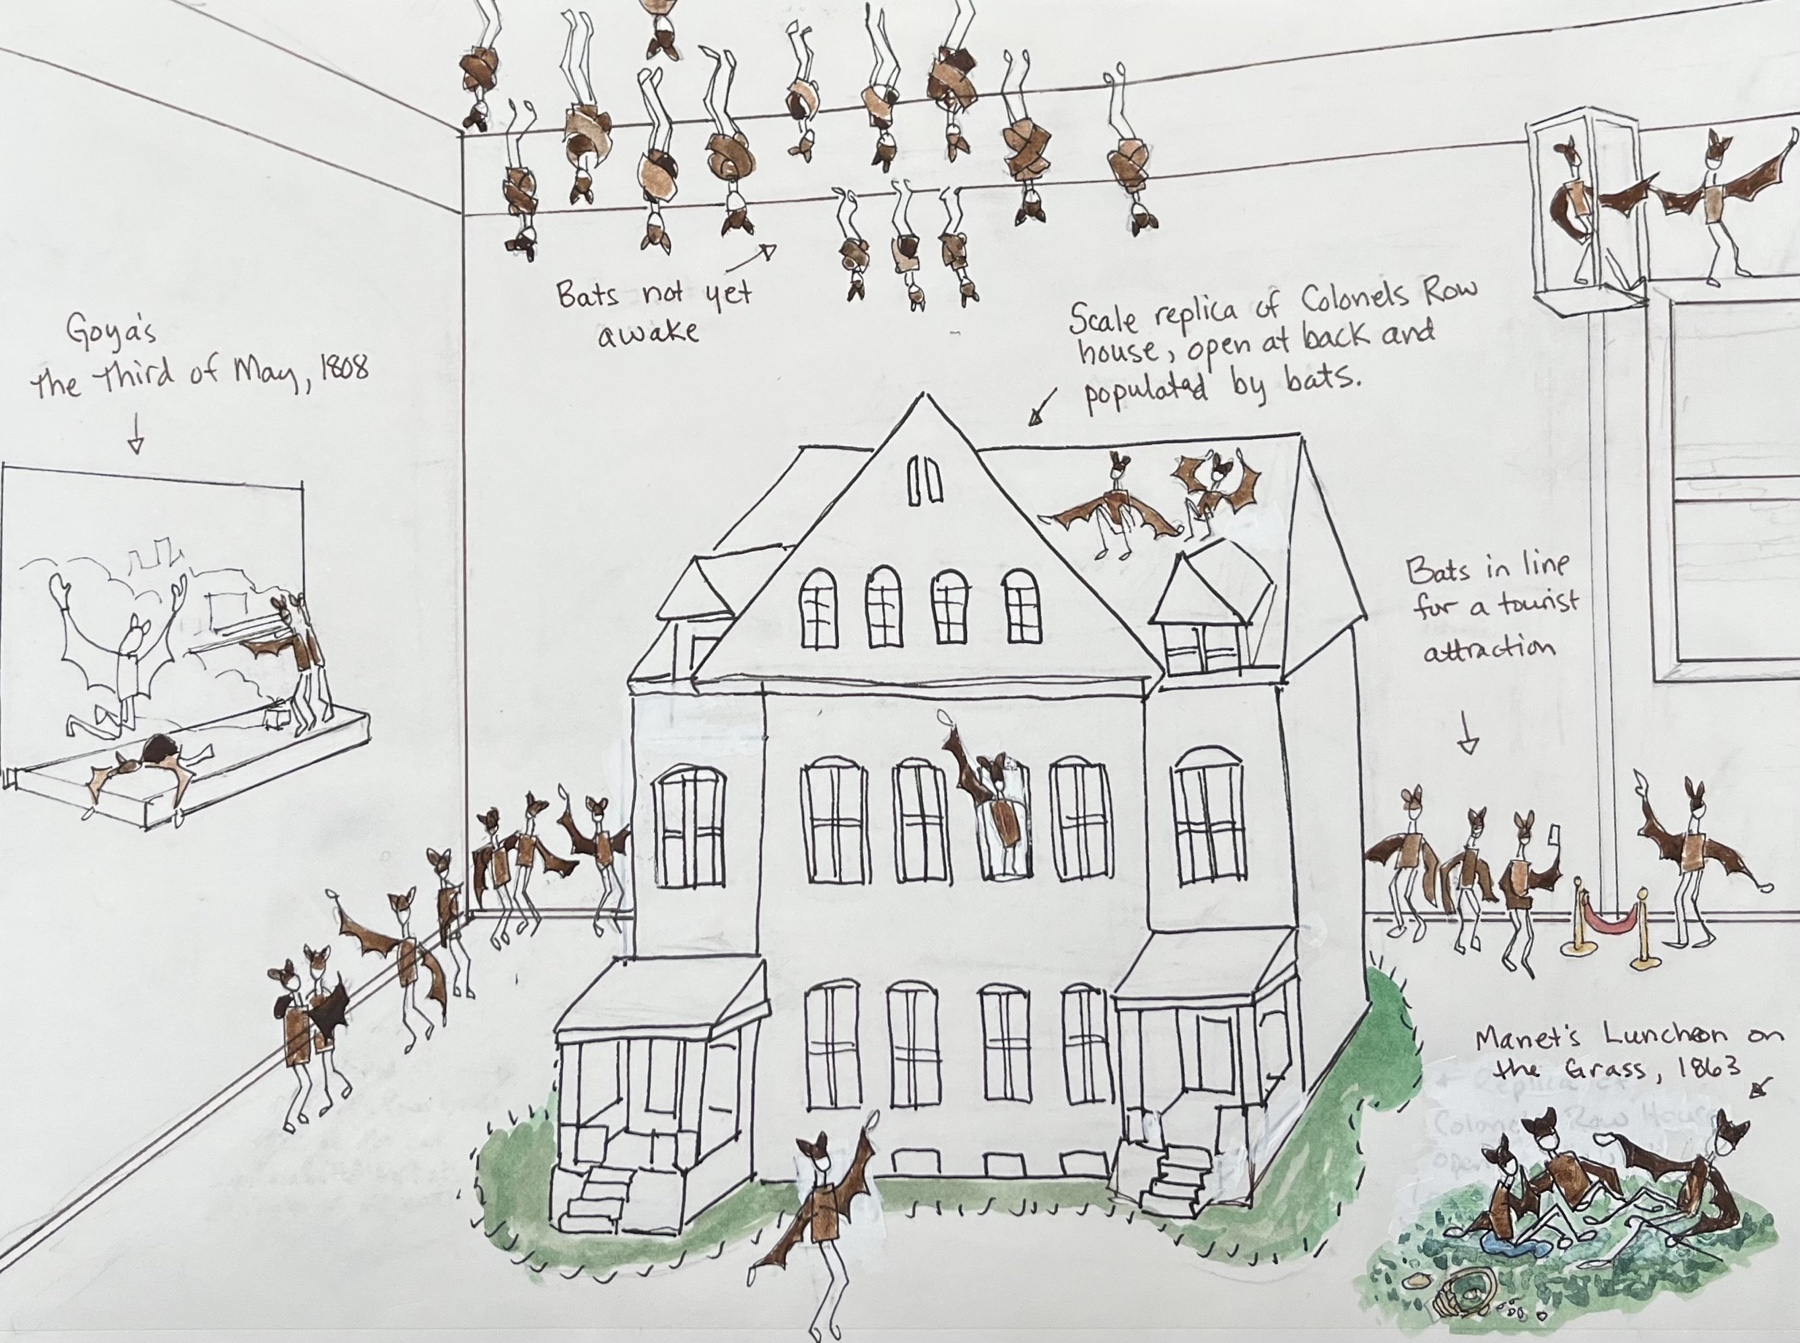 Bats not yet
awake
Goya's
The Third of May, 1808
Scale replica of Colonels Row
house, open at back and
populated by bats.
Bats in line
for a tourist
attraction
Manet's Luncheon on
the Grass, 1863
Replica of
Colonels Row House
open